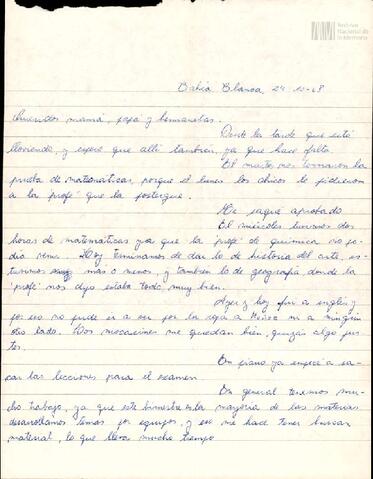 Archivo
Nacional de
la Memoria
Bahía Blanca 24-10-68
Queridos mamá, papá y hermanitas.
Desde la tarde que está
lloviendo, y espero que allí también, ya que hace falta
El martes nos tomaron la
prueba de matemáticas, porque el lunes los chicos le pidieron
a la profe que la postergue.
Me saqué aprobado
El miércoles tuvimos dos
horas de matemáticas ya que la profe de química no po-
día venir. Hoy terminamos de dar lo de historia del arte, es-
tuvimos más o menos, y también lo de geografía donde la
"profe" nos dijo estaba todo muy bien.
Ayer y hoy fui a inglés y
por eso no pude ir a ver por la ropa a ni a ningún
otro lado. Los mocasines me quedan bien, quizás algo jus-
tos.
En piano ya empecé a sa-
car las lecciones para el examen
En general tenemos mu-
cho trabajo, ya que este bimestre en la mayoría de las materias
desarrollamos temas por equipos, y eso me hace tener buscar
material, lo que lleva mucho tiempo